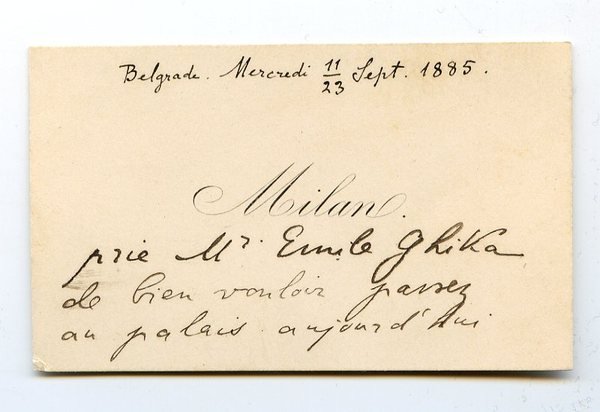 Belgrade. Mercredi 11/23 Sept. 1885.
Milan.
prie Mr. Emile Ghika
de bien vouloir passez
au palais aujourd'hui